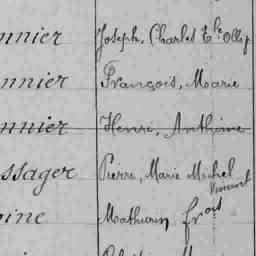 onnier Joseph, Charles
nnier François, Marie
nnier Henri, Anthime
ssager Pierre, Marie Michel
Vincent
oine Mathurin frois